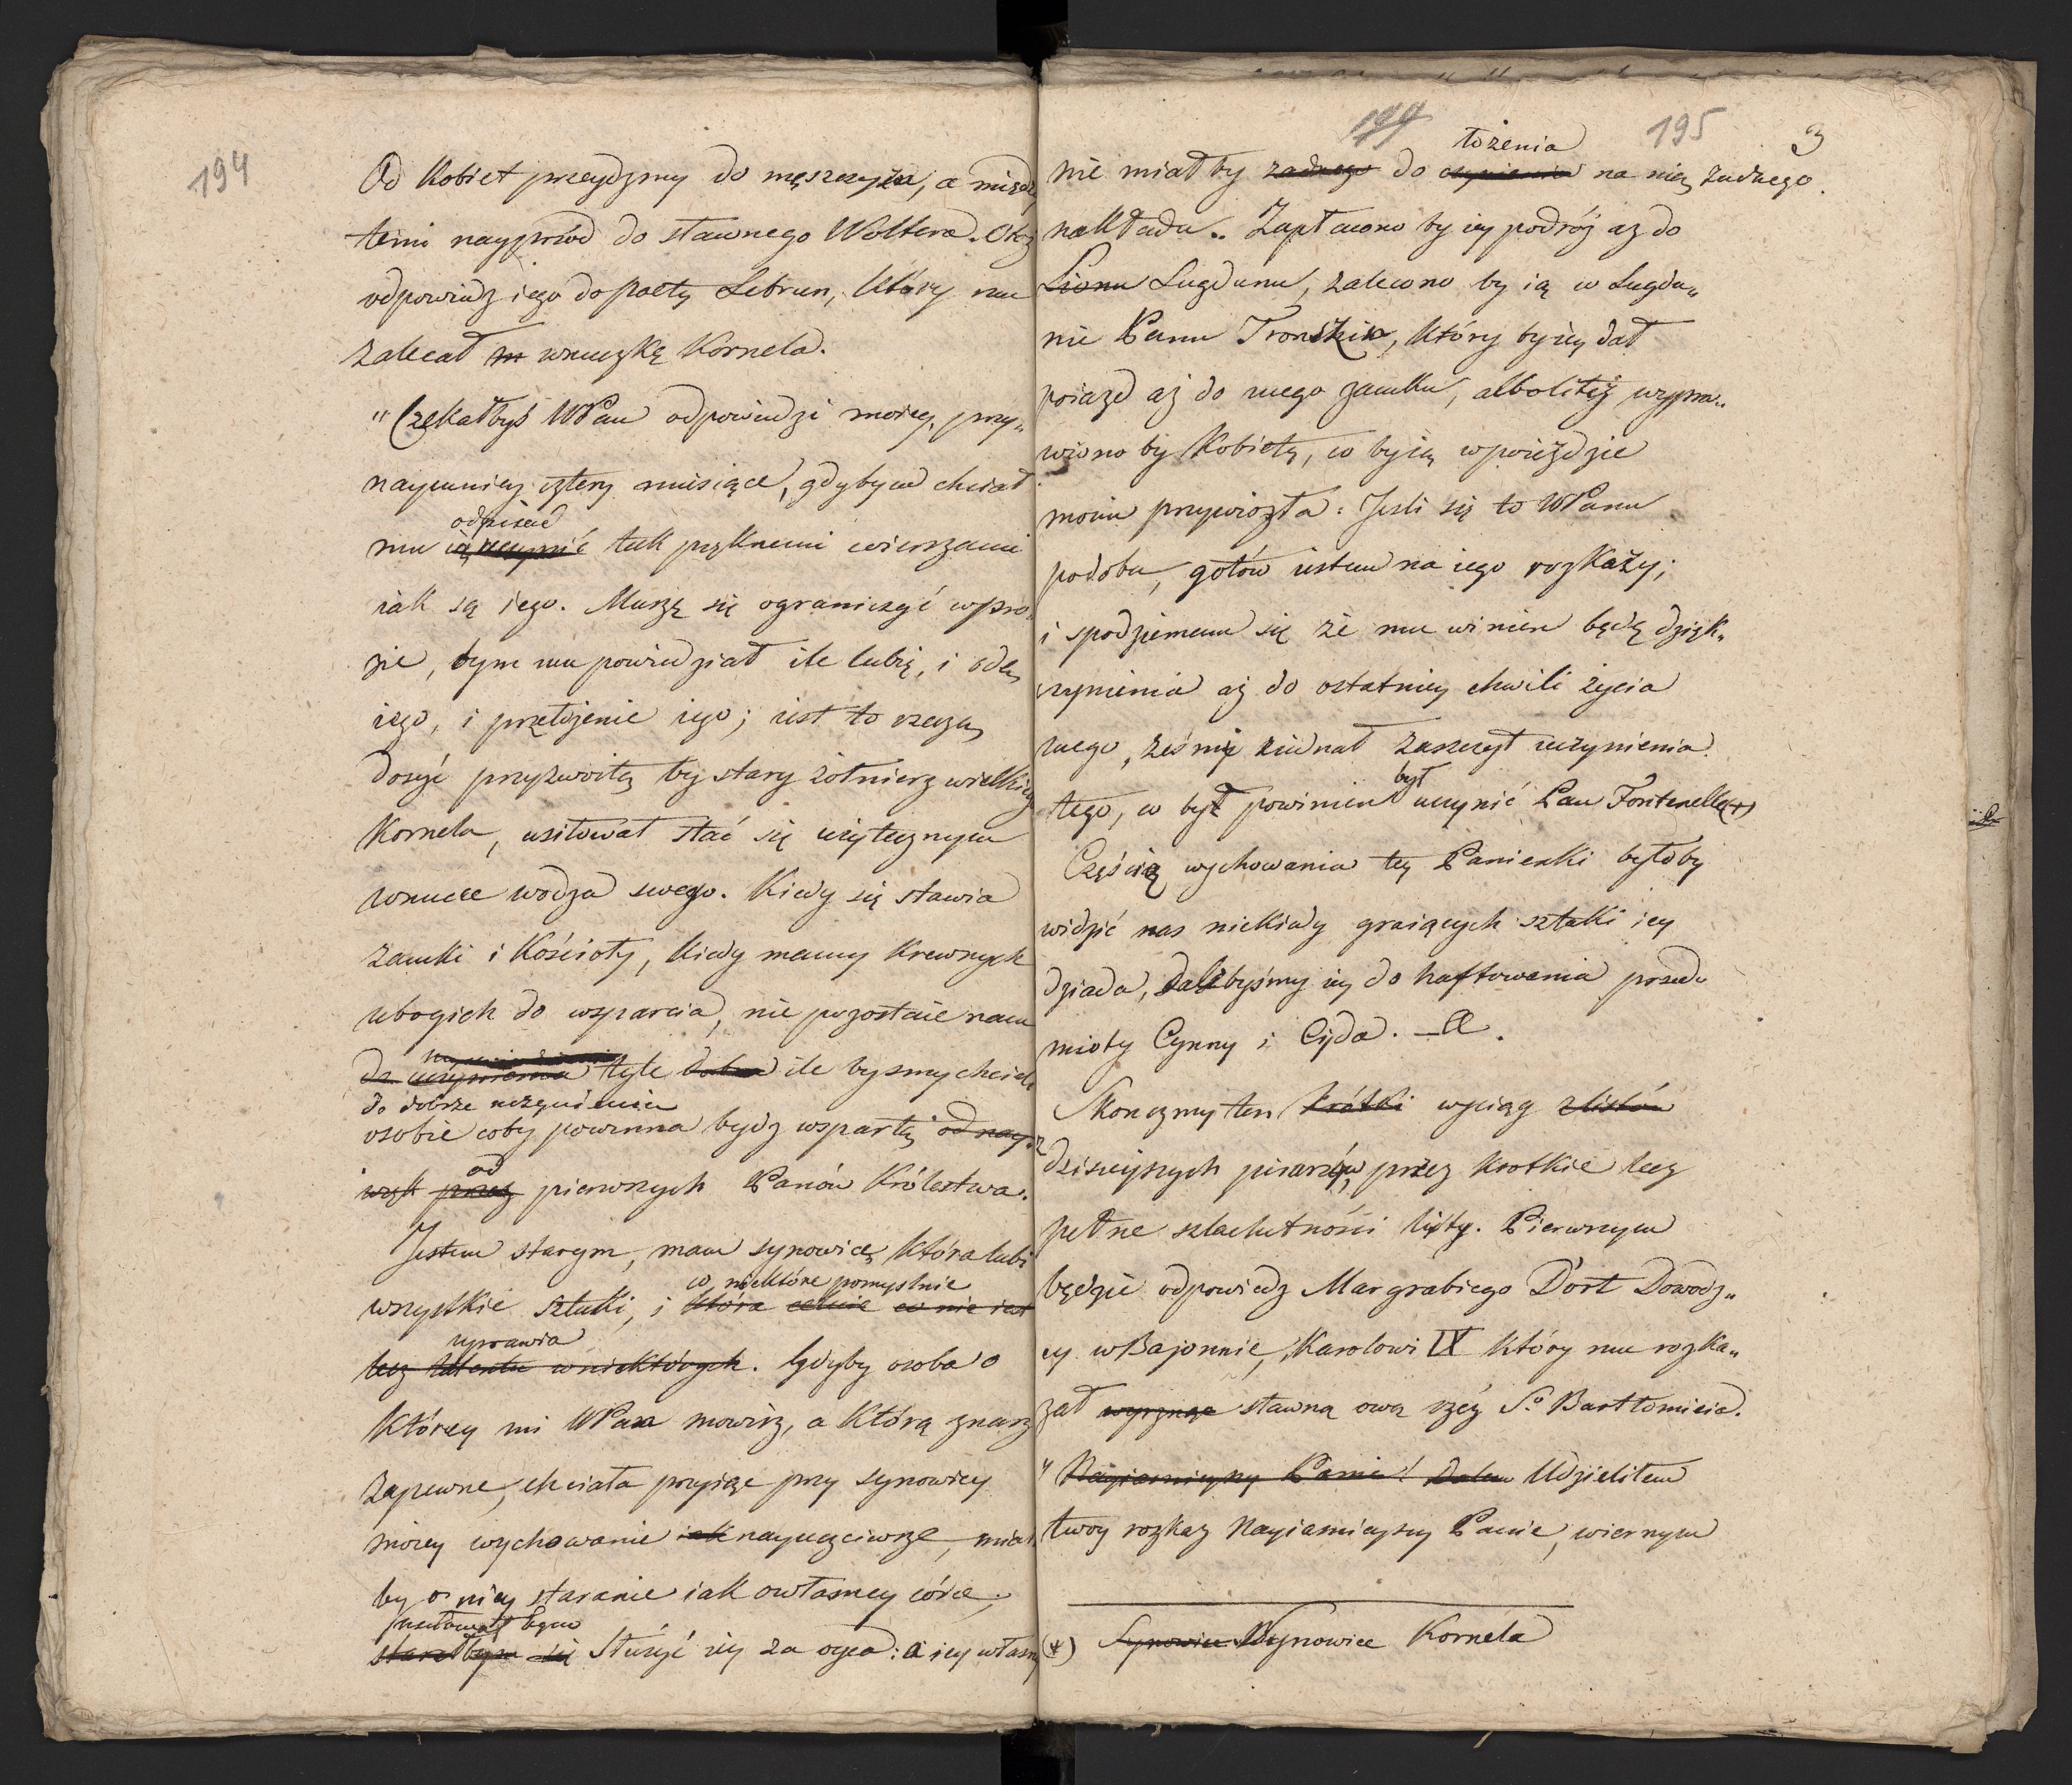 194
Od Kobiet przeydzmy do męszczyzn, a między
temi nayprzód do sławnego Woltera. Otoż
odpowiedz iego do poety Lebrun, który mu
zalecał wnuczkę Kornela.
"Czekałbyś WPan odpowiedzi moiey, przy„
naymniey cztery miesiące, gdybym chciał
odpisać
mu tak pięknemi wierszami
iak są iego. Muszę się ograniczyć w pro„
zie, bym mu powiedział ile lubię, i odę
iego, i przełożenie iego; iest to rzeczą
dosyć przyzwoitą by stary żołnierz wielkiego
Kornela, usiłował stać się użytecznym
wnuce wodza swego. Kiedy się stawia
zamki i Kościoły, kiedy mamy krewnych
ubogich do wsparcia, nie pozostaie nam
do uczynienia tyle ile byśmy chcieli
do dobrze uczynienia
osobie coby powinna bydz wspartą od nay„
od
przez pierwszych Panów Królestwa.
Jestem starym, mam synowicę która lubi
co niektóre pomyślnie
wszystkie sztuki, i która celuie co nie iest
uprawia
bez talentu w niektórych. Gdyby osoba o
którey mi WPan mowisz, a którą znasz
zapewne, chciała przyiąć przy synowicy
moiey wychowanie iak nayuczciwsze, miał
by o niey staranie iak o własney córce,
usiłował bym
starałbym się służyć iey za oyca: a iey własny
199 195 3
łożenia
nie miałby żadnego do czynienia na nię żadnego
nakładu.. Zapłacono by iey podróż aż do
Lionu Lugdunu, zalecono by ią w Lugdu„
nie Panu Tronszin, który by iey dał
poiazd aż do mego zamku, albo liteż wypra„
wiono by Kobietę, co by ią w poieździe
moim przywiozła: Jeśli się to WPanu
podoba, gotów iestem na iego rozkazy;
i spodziewam się że mu winien będę dzięk„
czynienia aż do ostatniey chwili życia
mego, żeś mi ziednał zaszczyt uczynienia
był
tego, co był powinien uczynić Pan Fontenelle (+)
Częścią wychowania tey Panienki byłoby
widzić nas niekiedy graiących sztuki iey
dziada, dalibyśmy iey do haftowania przed„
mioty Cynny i Cyda. —
Skonczmy ten krótki wyciąg z listów
dzisieyszych pisarzów, przez krotkie lecz
pełne szlachetności listy. Pierwszym
będzie odpowiedz Margrabiego D'ort Dowodz„
cy w Bajonnie, Karolowi IX który mu rozka„
zał wyrznąć sławną ową rzeź S.o Bartłomieia.
" Nayiasnieyszy Panie! Dałem Udzieliłem
twoy rozkaz Nayiasnieyszy Panie, wiernym
(+) Synowiec Synowiec Kornela